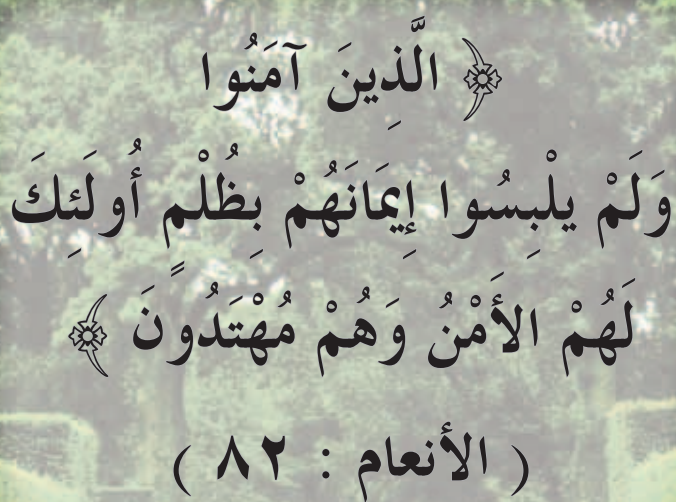 ﴿ الَّذِينَ آمَنُوا
وَلَمْ يلْبِسُوا إِيمَانَهُمْ بِظُلْمٍ أُولَئِكَ
لَهُمْ الأَمْنُ وَهُمْ مُهْتَدُونَ ﴾
( الأنعام : ٨٢ )